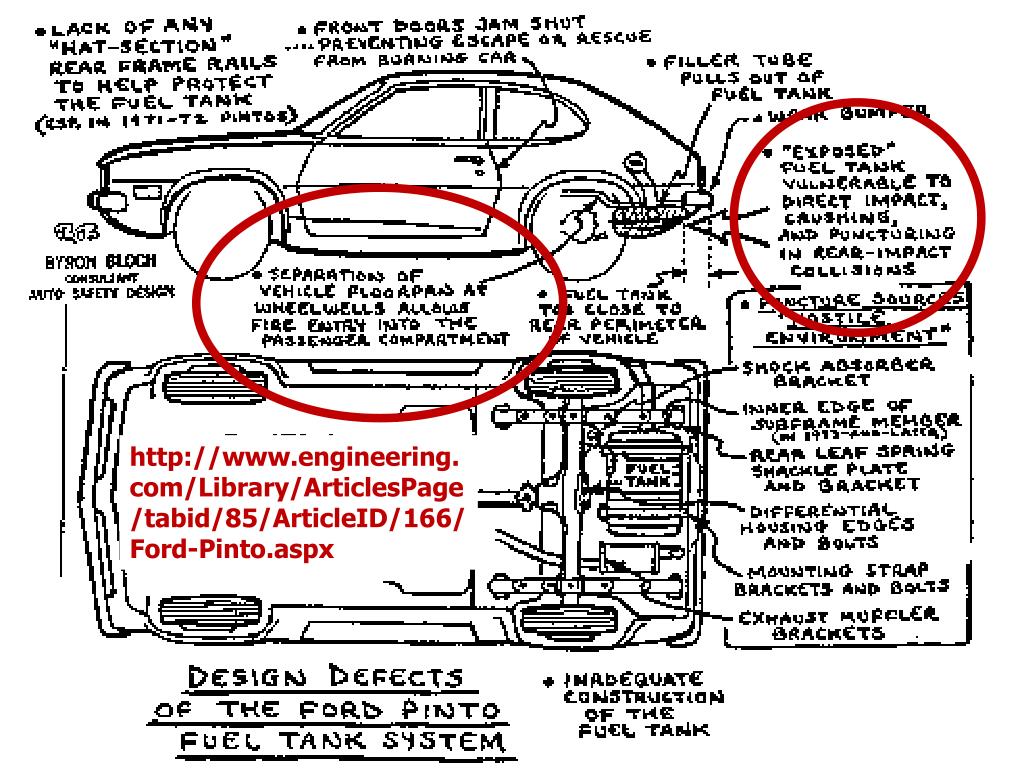 • LACK OF ANY
"HAT-SECTION"
REAR FRAME RAILS
TO HELP PROTECT
THE FUEL TANK
(ESP. IN 1971-72 PINTOS)
• FRONT DOORS JAM SHUT
PREVENTING ESCAPE OR RESCUE
FROM BURNING CAR
• FILLER TUBE
PULLS OUT OF
FUEL TANK
• WEAK BUMPER
• "EXPOSED"
FUEL TANK
VULNERABLE TO
DIRECT IMPACT,
CRUSHING,
AND PUNCTURING
IN REAR-IMPACT
COLLISIONS
BYRON BLOCH
CONSULTANT
AUTO SAFETY DESIGN
• SEPARATION OF
VEHICLE FLOORPAN AT
WHEELWELLS ALLOWS
FIRE ENTRY INTO THE
PASSENGER COMPARTMENT
• FUEL TANK
TOO CLOSE TO
REAR PERIMETER
OF VEHICLE
• PUNCTURE SOURCES
HOSTILE
ENVIRONMENT"
SHOCK ABSORBER
BRACKET
INNER EDGE OF
SUBFRAME MEMBER
(IN 1973-AND-LATER)
REAR LEAF SPRING
SHACKLE PLATE
AND BRACKET
DIFFERENTIAL
HOUSING EDGES
AND BOLTS
MOUNTING STRAP
BRACKETS AND BOLTS
EXHAUST MUFFLER
BRACKETS
FUEL
TANK
http://www.engineering.
com/Library/ArticlesPage
/tabid/85/ArticleID/166/
Ford-Pinto.aspx
DESIGN DEFECTS
OF THE FORD PINTO
FUEL TANK SYSTEM
• INADEQUATE
CONSTRUCTION
OF THE
FUEL TANK